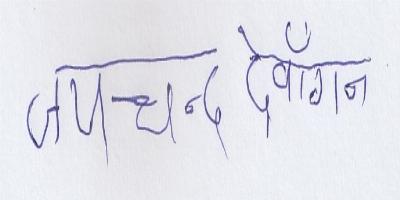 जयचन्द देवाँगन